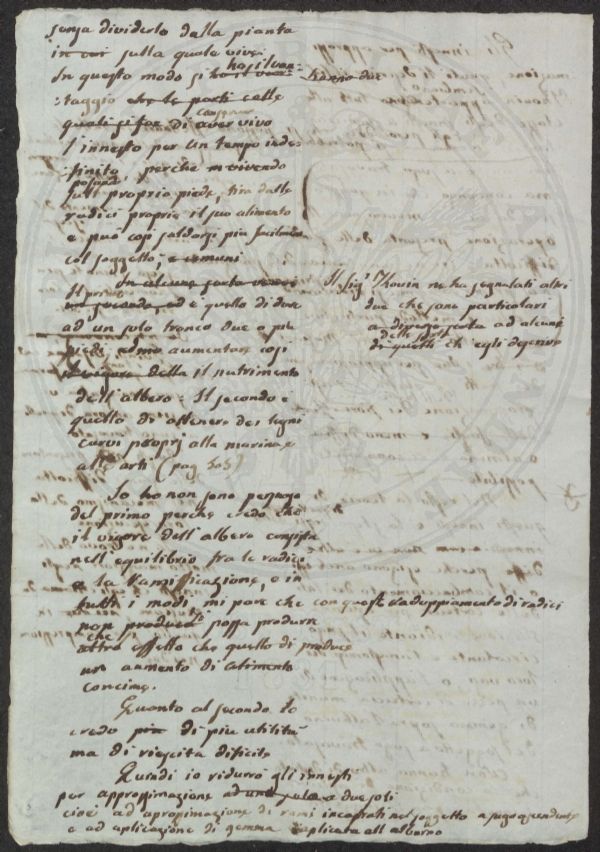 senza dividerlo dalla pianta
in cui sulla quale vive.
In questo modo si ha il van-
taggio che le parti colle
quali si fa di conservar aver vivo
l'innesto per un tempo inde-
finito, perchè vivendo
sull proprio piede, tira dalle
radici proprie il suo alimento
e può così saldarsi più facilmente
col soggetto; e comuni
Il primo
ed è quello di dare
ad un solo tronco due o più
piedi, aumentare così
il vigore della il nutrimento
dell'albero: Il secondo e
quello di ottener dei legni
curvi proprj alla marina, e
alle arti (pag 303)
Il Sig.r Thouin ne ha segnalati altri
due che sono particolari
ad alcune
delle
di quelle ch egli descrive
Io ho non sono persuaso
del primo perche credo che
il vigore dell'albero consista
nell'equilibrio fra le radici
e la ramificazione, e in
tutti i modi, mi pare che con queste raddoppiamento di radici
non produca possa produrre
altro effetto che quello di produce
un aumento di alimento
concime.
Quanto al secondo lo
credo più di più utilità
ma di riescita dificile
Quindi io ridurrò gli innesti
per approssimazione ad una sola a due soli
cioè ad aprossimazione di rami incastrati nel soggetto
e ad aplicazione di gemma aplicata all alburno